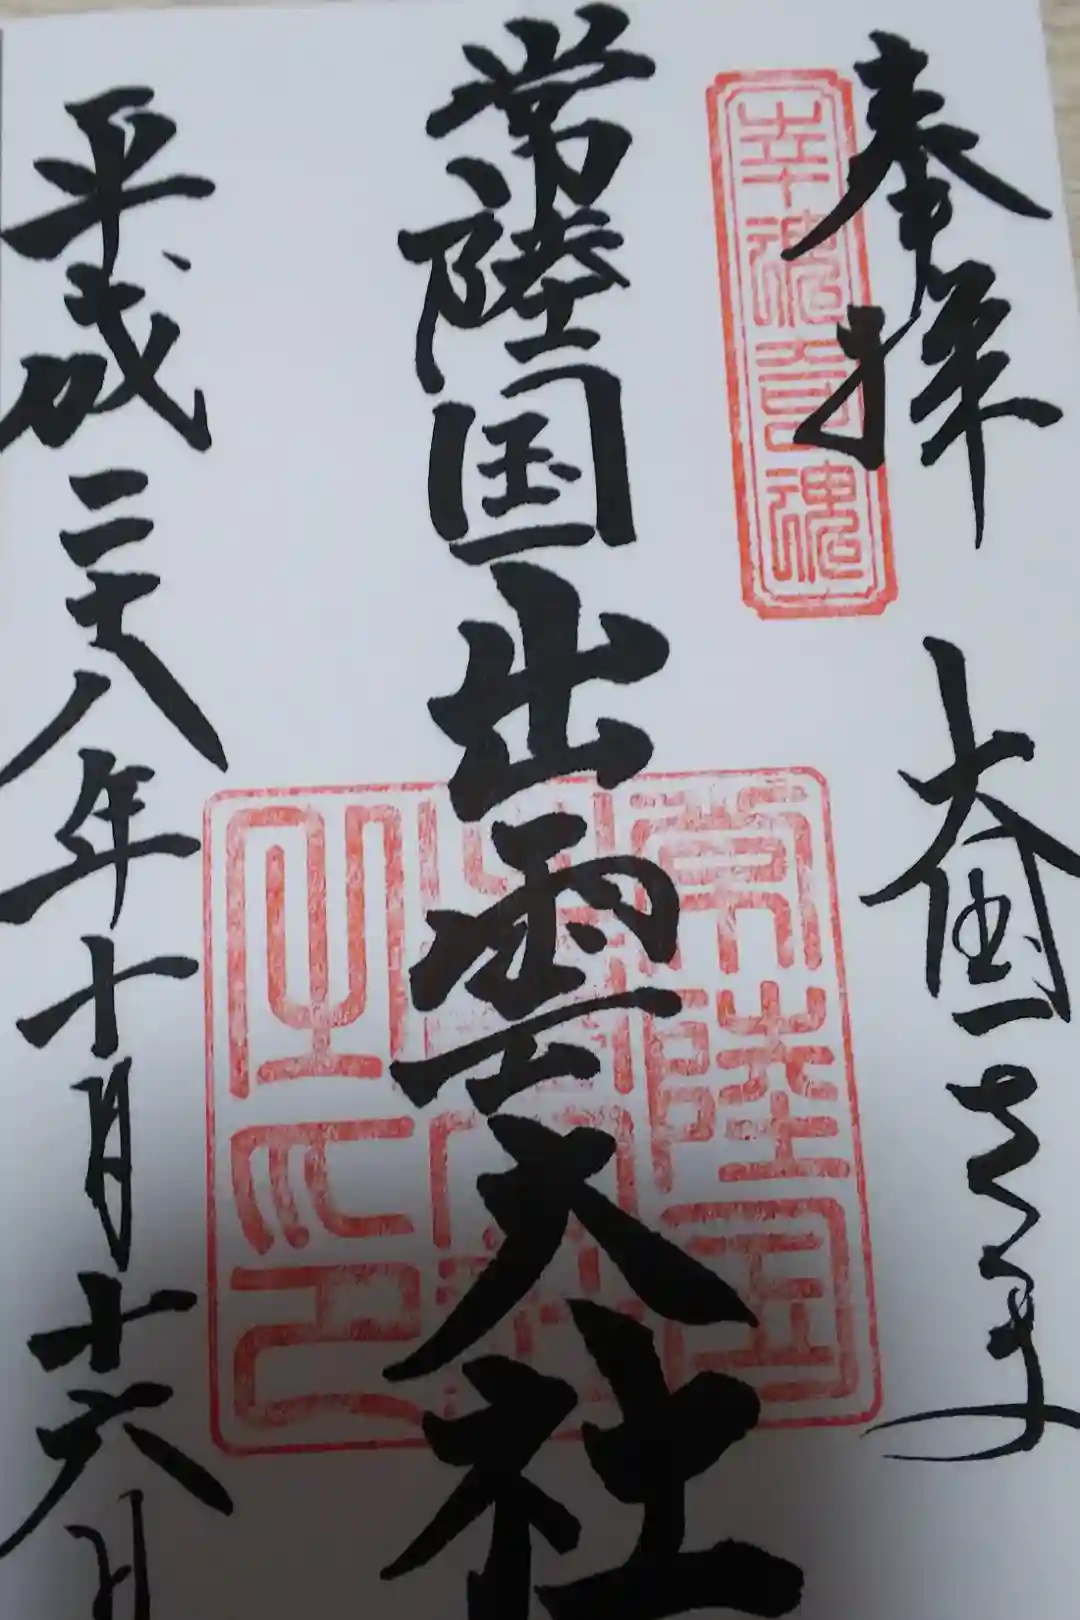 奉拝 大国
幸魂奇魂
常陸国出雲大社
常陸国出雲大社之印
平成二十八年十月十六日